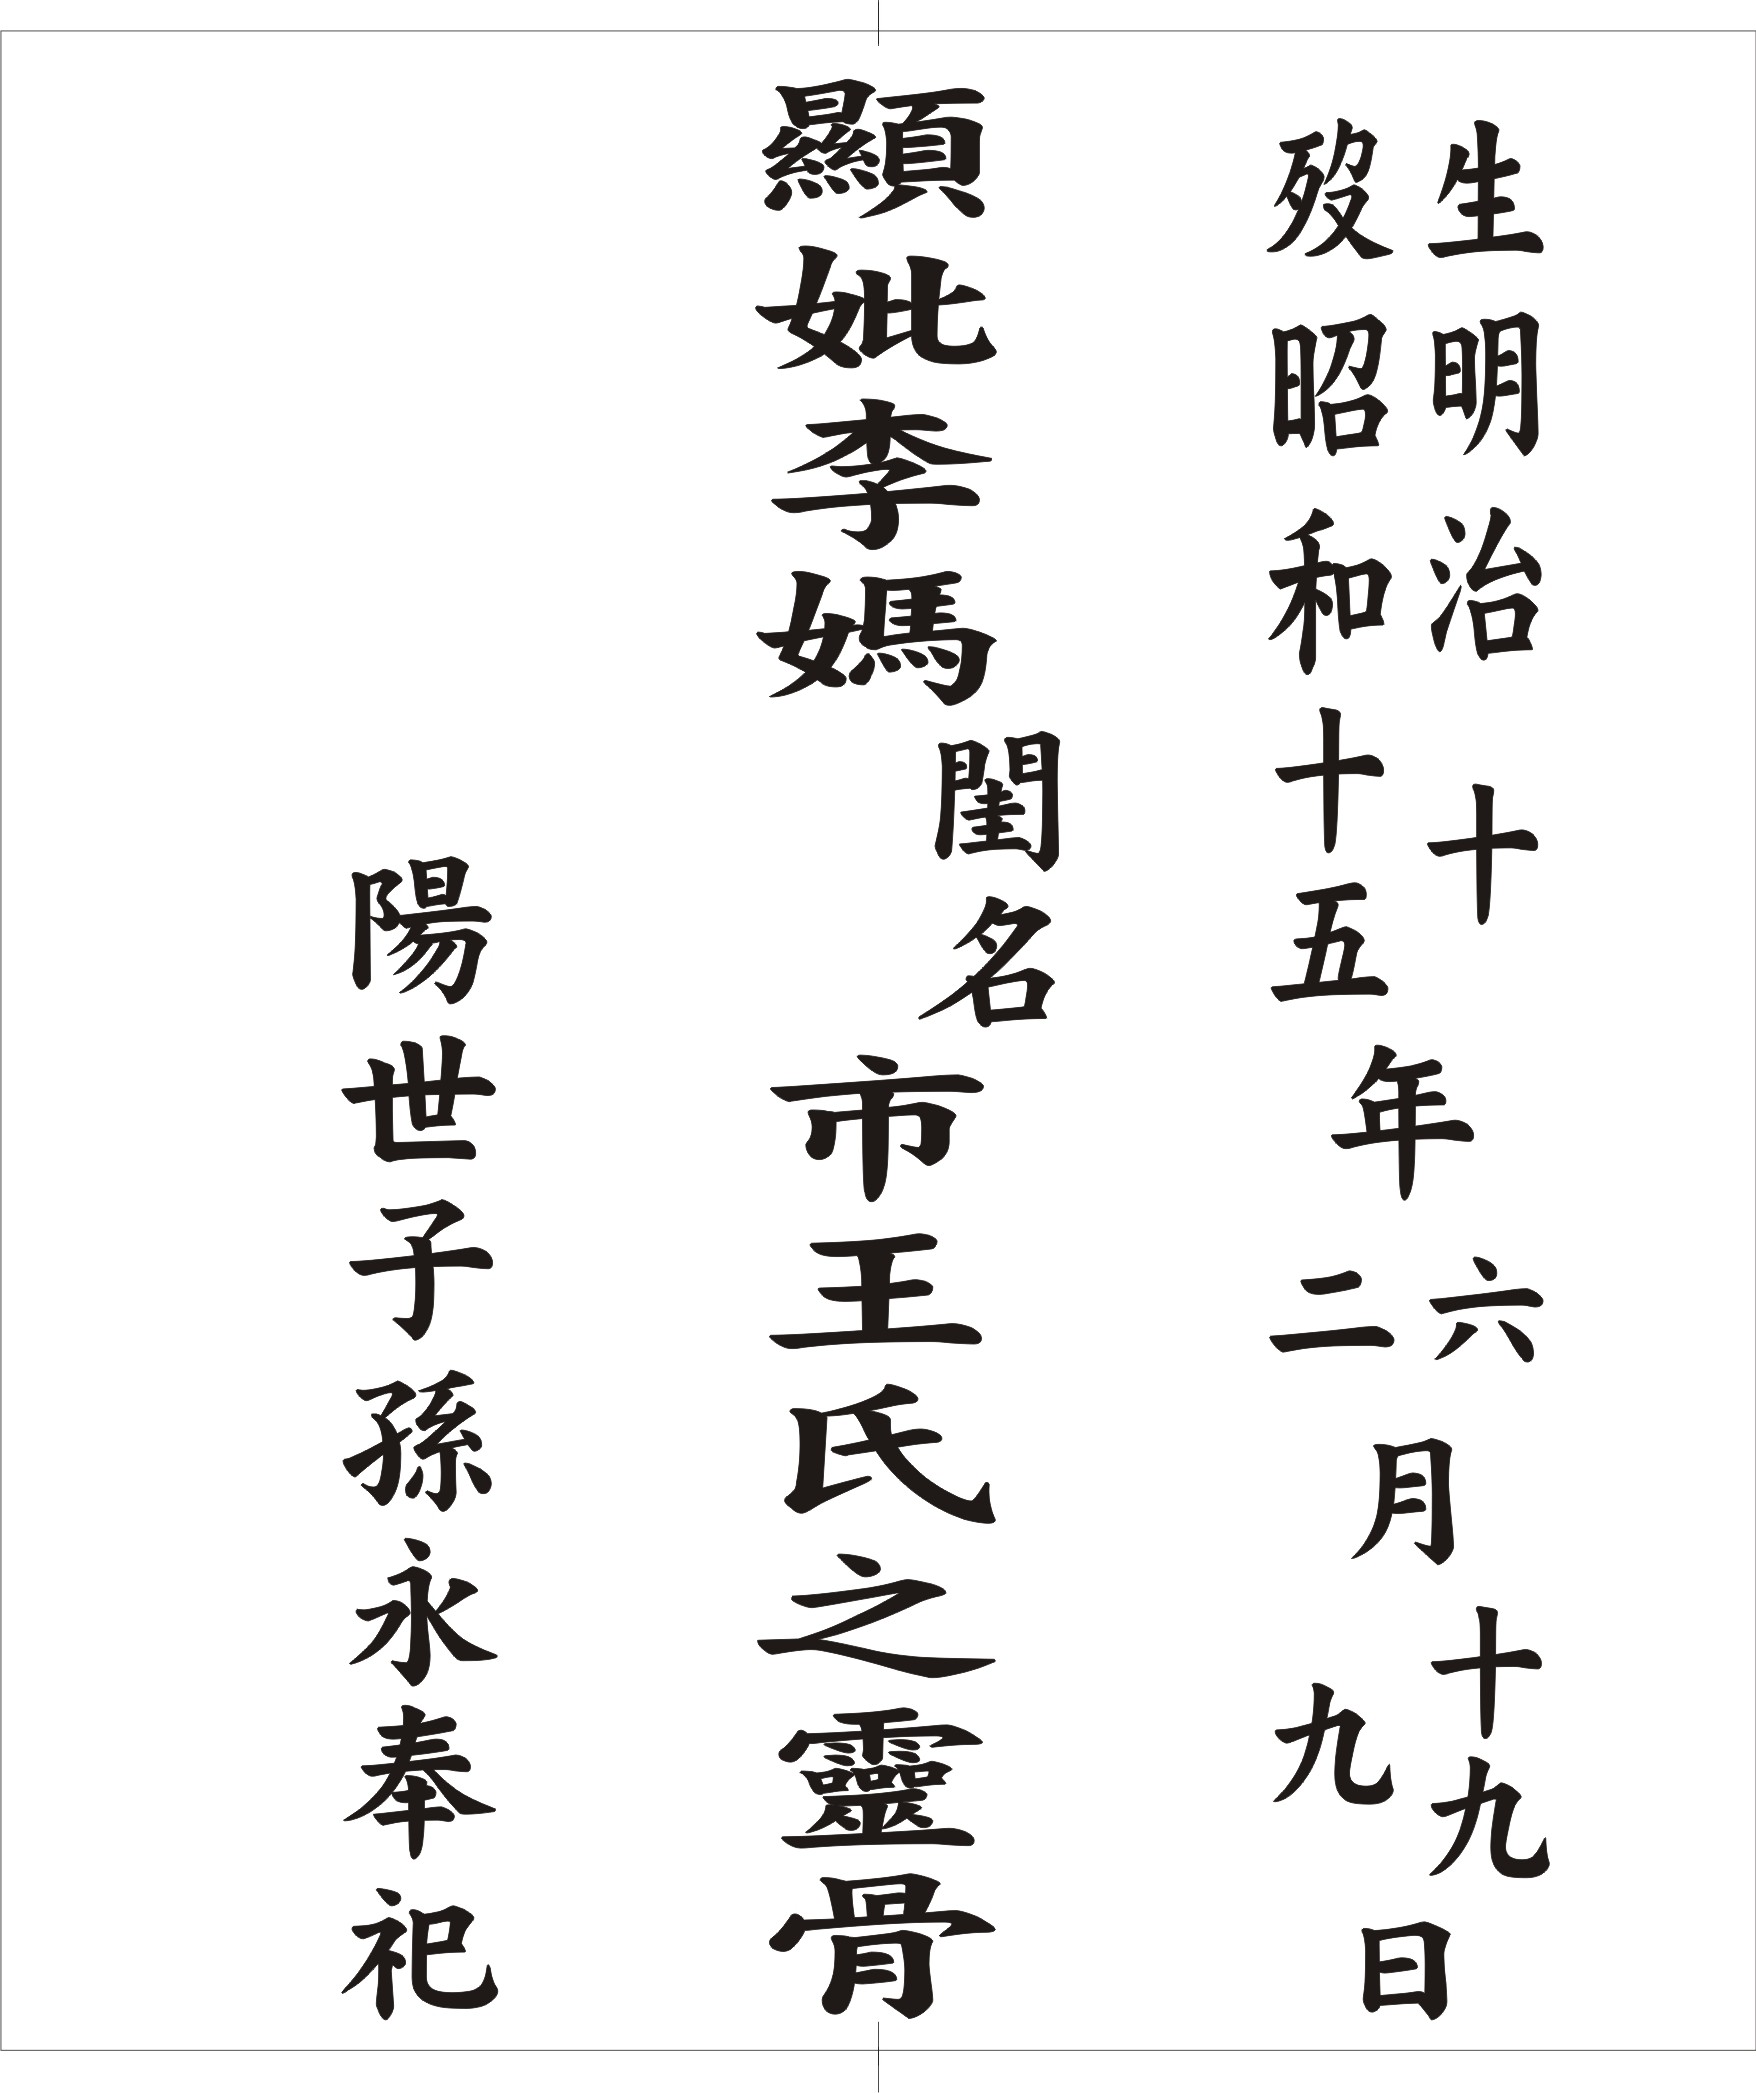 生明治十年六月十九日
歿昭和十五二九
顯妣李媽閨名市王氏之靈骨
陽世子孫永奉祀